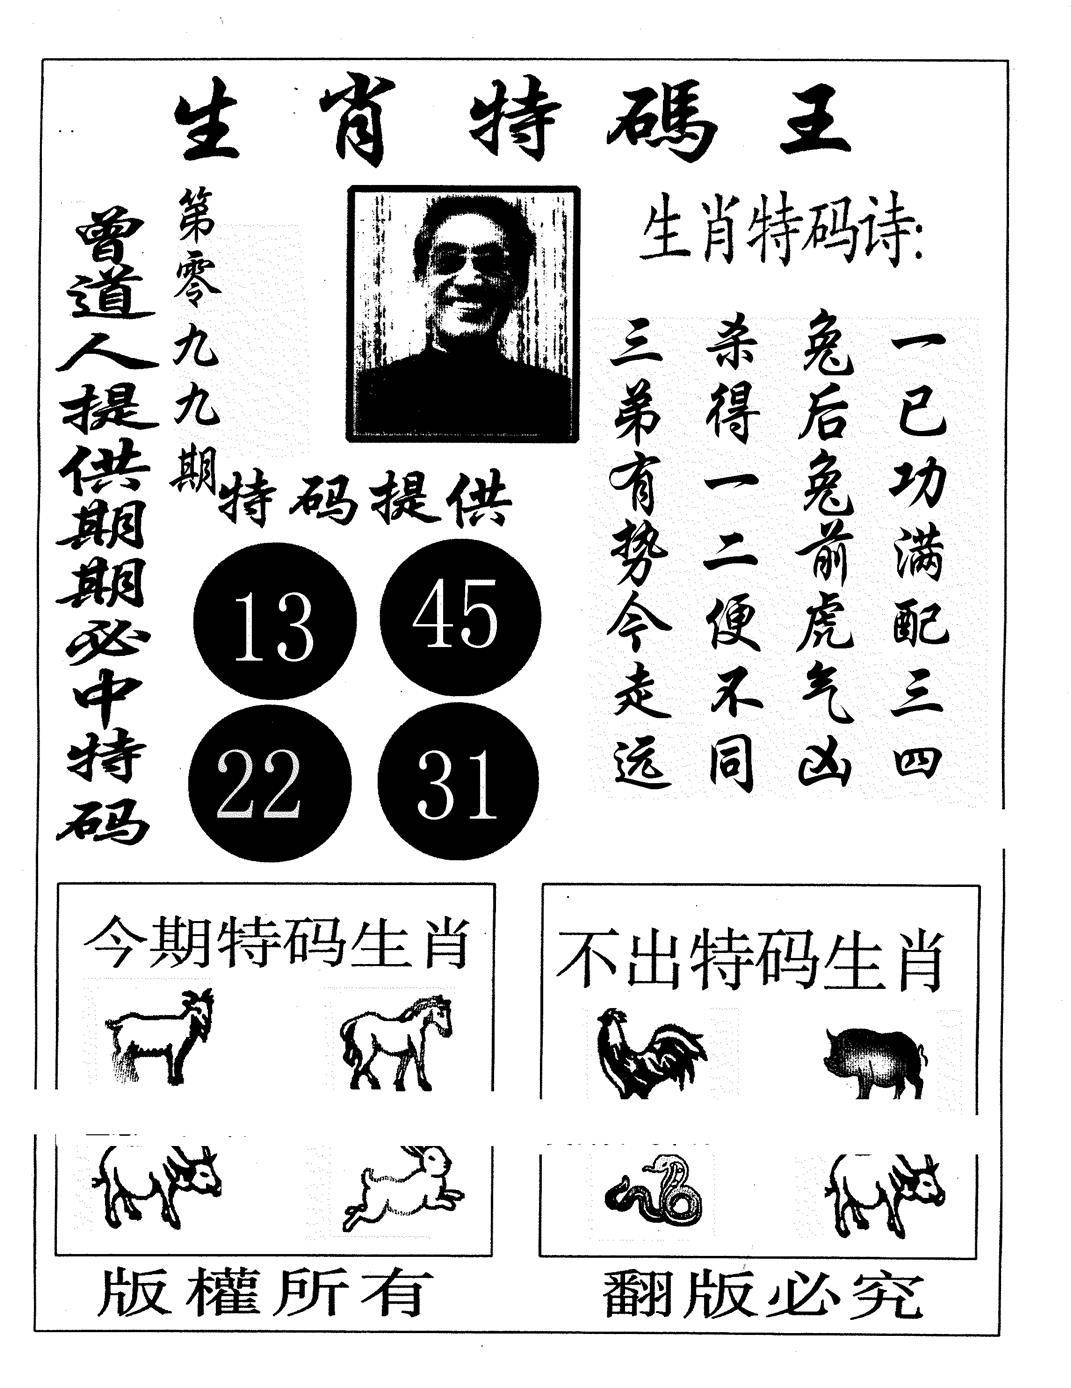 生肖特碼王
曾道人提供期期必中特码
第零九九期
特码提供
13 45
22 31
生肖特码诗:
一已功满配三四
兔后兔前虎气凶
杀得一二便不同
三弟有势今走远
今期特码生肖
不出特码生肖
版權所有
翻版必究